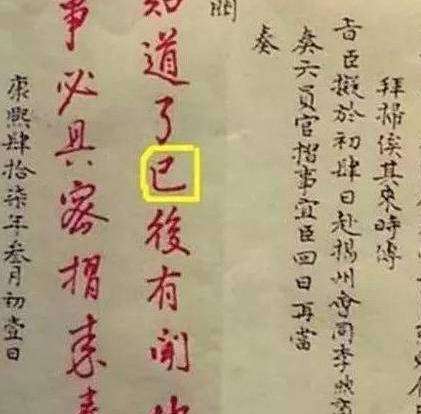 拜掃俟其來時傳
旨臣擬於初肆日赴揚州會同李煦
奏六員官摺事宜臣回日再當
奏
知道了已後有聞
事必具密摺來奏
康熙肆拾柒年叁月初壹日